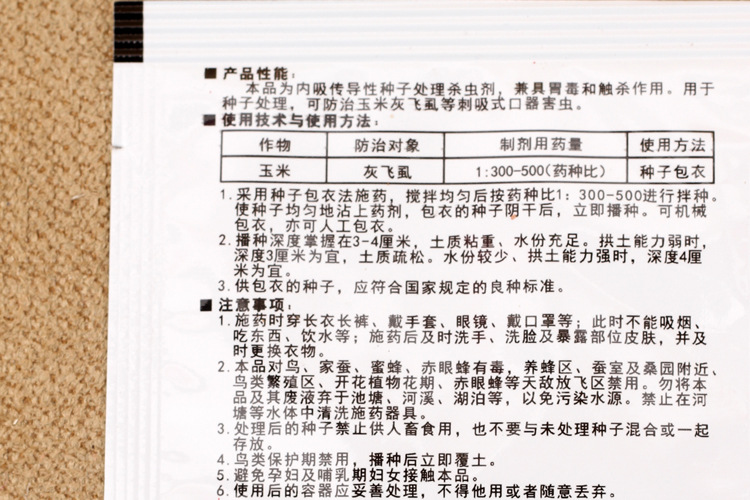 ■ 产品性能：
本品为内吸传导性种子处理杀虫剂，兼具胃毒和触杀作用。用于
种子处理，可防治玉米灰飞虱等刺吸式口器害虫。
■ 使用技术与使用方法：
作物 防治对象 制剂用药量 使用方法
玉米 灰飞虱 1:300-500(药种比) 种子包衣
1. 采用种子包衣法施药，搅拌均匀后按药种比1：300-500进行拌种。
使种子均匀地沾上药剂，包衣的种子阴干后，立即播种。可机械
包衣，亦可人工包衣。
2. 播种深度掌握在3-4厘米，土质粘重、水份充足。拱土能力弱时，
深度3厘米为宜，土质疏松。水份较少、拱土能力强时，深度4厘
米为宜。
3. 供包衣的种子，应符合国家规定的良种标准。
■ 注意事项：
1. 施药时穿长衣长裤、戴手套、眼镜、戴口罩等；此时不能吸烟、
吃东西、饮水等；施药后及时洗手、洗脸及暴露部位皮肤，并及
时更换衣物。
2. 本品对鸟、家蚕、蜜蜂、赤眼蜂有毒，养蜂区、蚕室及桑园附近、
鸟类繁殖区、开花植物花期、赤眼蜂等天敌放飞区禁用。勿将本
品及其废液弃于池塘、河溪、湖泊等，以免污染水源。禁止在河
塘等水体中清洗施药器具。
3. 处理后的种子禁止供人畜食用，也不要与未处理种子混合或一起
存放。
4. 鸟类保护期禁用，播种后立即覆土。
5. 避免孕妇及哺乳期妇女接触本品。
6. 使用后的容器应妥善处理，不得他用或者随意丢弃。